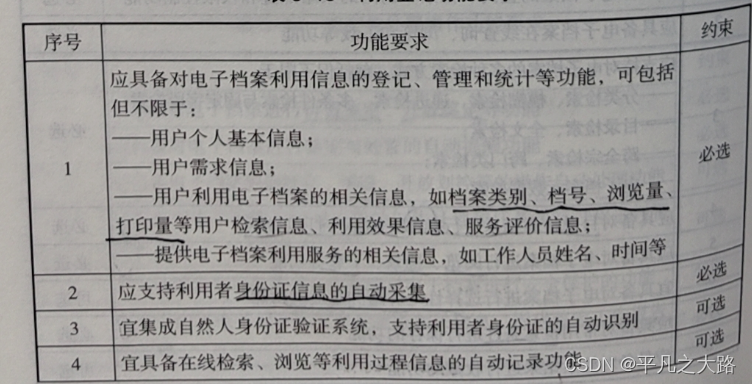 序号 功能要求 约束
应具备对电子档案利用信息的登记、管理和统计等功能，可包括
但不限于：
——用户个人基本信息；
——用户需求信息；
1 必选
——用户利用电子档案的相关信息，如档案类别、档号、浏览量、
打印量等用户检索信息、利用效果信息、服务评价信息；
——提供电子档案利用服务的相关信息，如工作人员姓名、时间等
2 应支持利用者身份证信息的自动采集 必选
3 宜集成自然人身份证验证系统，支持利用者身份证的自动识别 可选
4 宜具备在线检索、浏览等利用过程信息的自动记录功能 可选
CSDN @平凡之大路